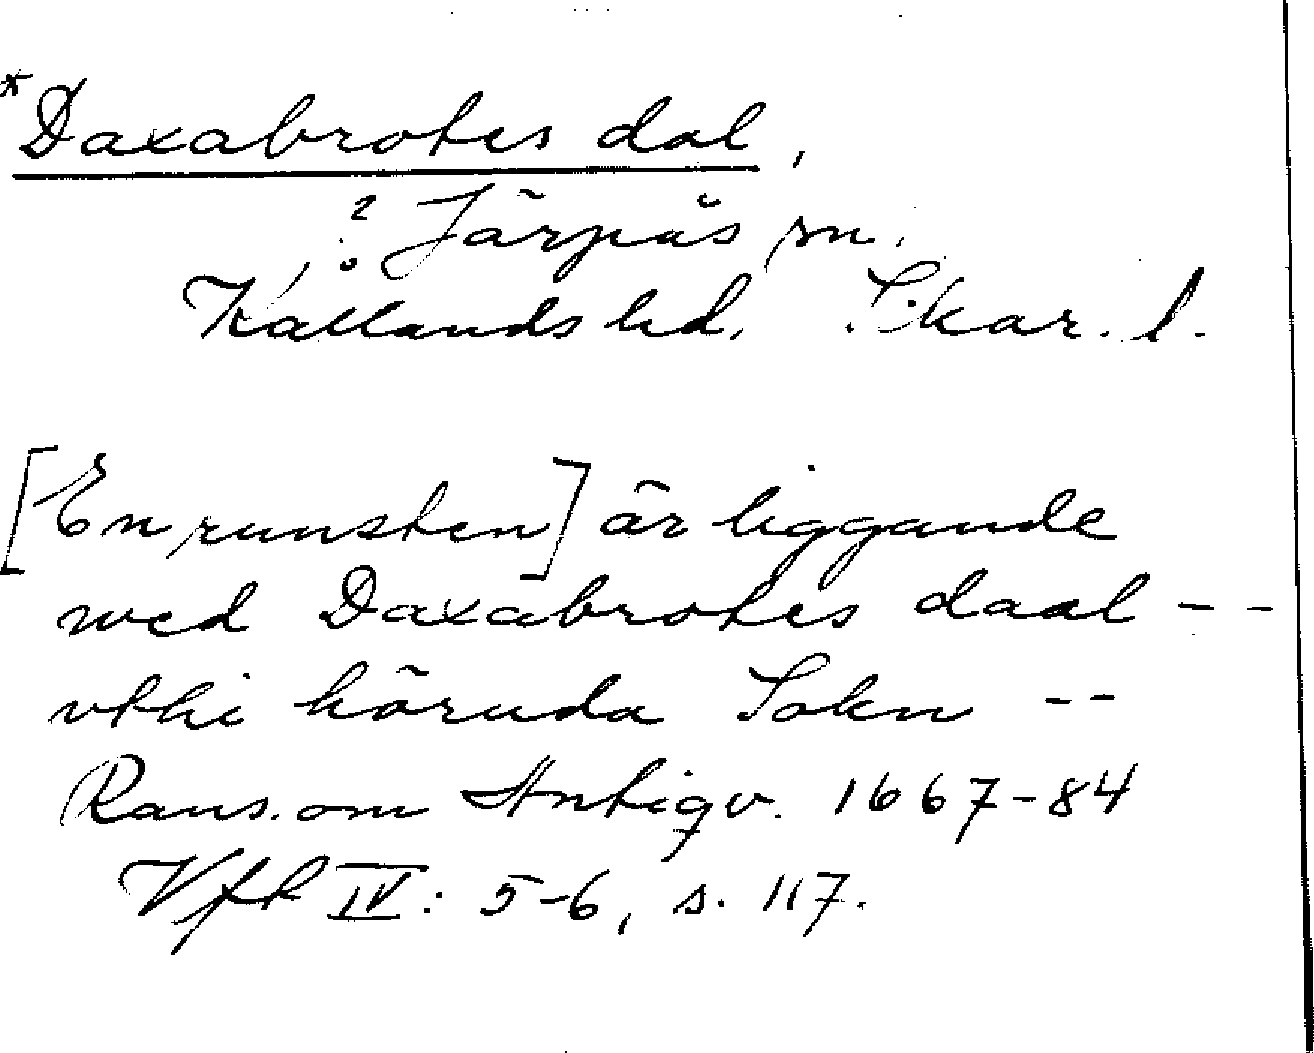 *Daxabrotes dal,
? Järpås sn.
Kållands hd. Skar. l.
[En runsten] är liggande
med Daxabrotes daal --
vthi häruda Sokn --
Rans. om Antiqv. 1667-84
Vft IV: 5-6, s. 117.